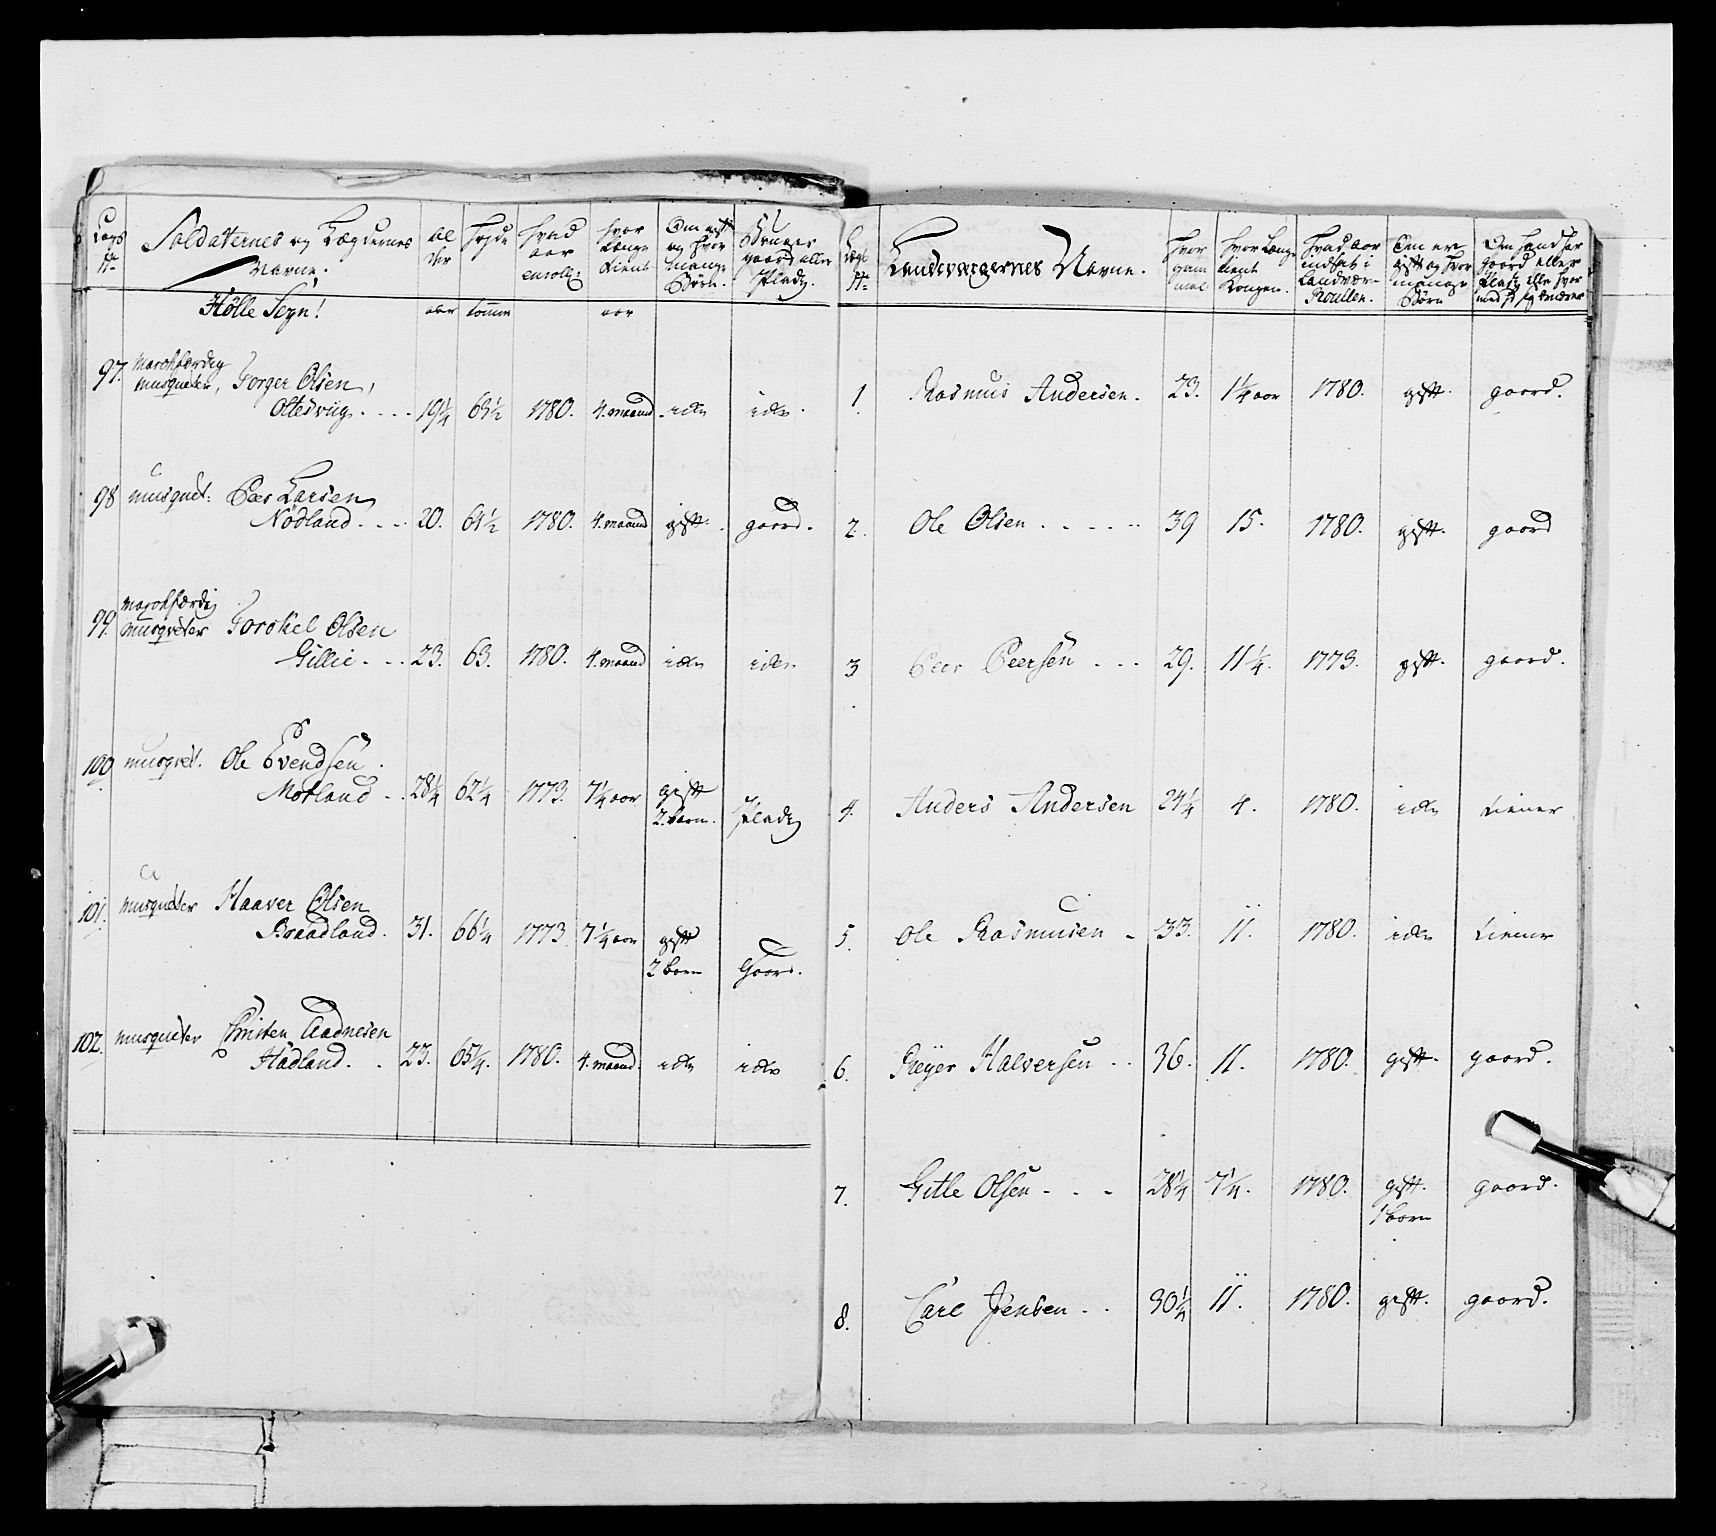 Lægs No Soldaternes og Lægdernes Navne. Al der Højde hvad aar enroll: hvor længe tient Om gift og hvor mange Børn. Bruger gaard eller Pladz.
Hölle Sogn! aar tomme aar
97. Marchfærdig
musqueter, Torger Olsen,
Oltedviig. 19¼ 63½ 1780. 4. maand. icke icke.
98 musquet: Peer Larsen
Nödland. 20. 64½ 1780. 4. maand gift. gaard.
99. marchfærdig
musqveter Torchel Olsen
Gillie. 23. 63. 1780. 4. maand icke icke
100 musqvet. Ole Evendsen.
Motland 28¼ 62¼ 1773. 7¼ aar gift
2. barn. Pladz
101. musqueter Haaver Olsen
Braadland. 31. 66¼ 1773 7¼ aar gift
2 barn Gaard.
102. musqueter Christen Aadnesen
Hadland. 23. 65¼. 1780. 4. maand. icke icke
Lægs No Landeværgernes Navne. hvor gam mel hvor længe tient Kongen. hvad aar indsat i Landværn Roullen. Om er gift og hvor mange Børn Om hand har gaard eller Pladz eller hvor med
1. Rasmus Andersen. 23. 1¼ aar 1780. gift. gaard.
2. Ole Olsen 39 15. 1780. gift. gaard
3 Peer Peersen 29. 11¼. 1773. gift. gaard.
4. Anders Andersen 24¼ 4. 1780. icke tiener
5. Ole Rasmusen 33. 11. 1780. icke tiener
6. Reyer Halversen 36. 11. 1780. gift. gaard.
7. Gitle Olsen 28¼ 7¼. 1780. gift. gaard.
1 barn
8. Carl Jensen 30¼ 11. 1780. gift. gaard.